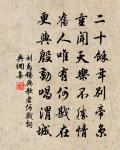 二十餘年別帝京
重聞天樂不勝情
舊人唯有何戡在
更與殷勤唱渭城
劉禹錫與歌者何戡詞